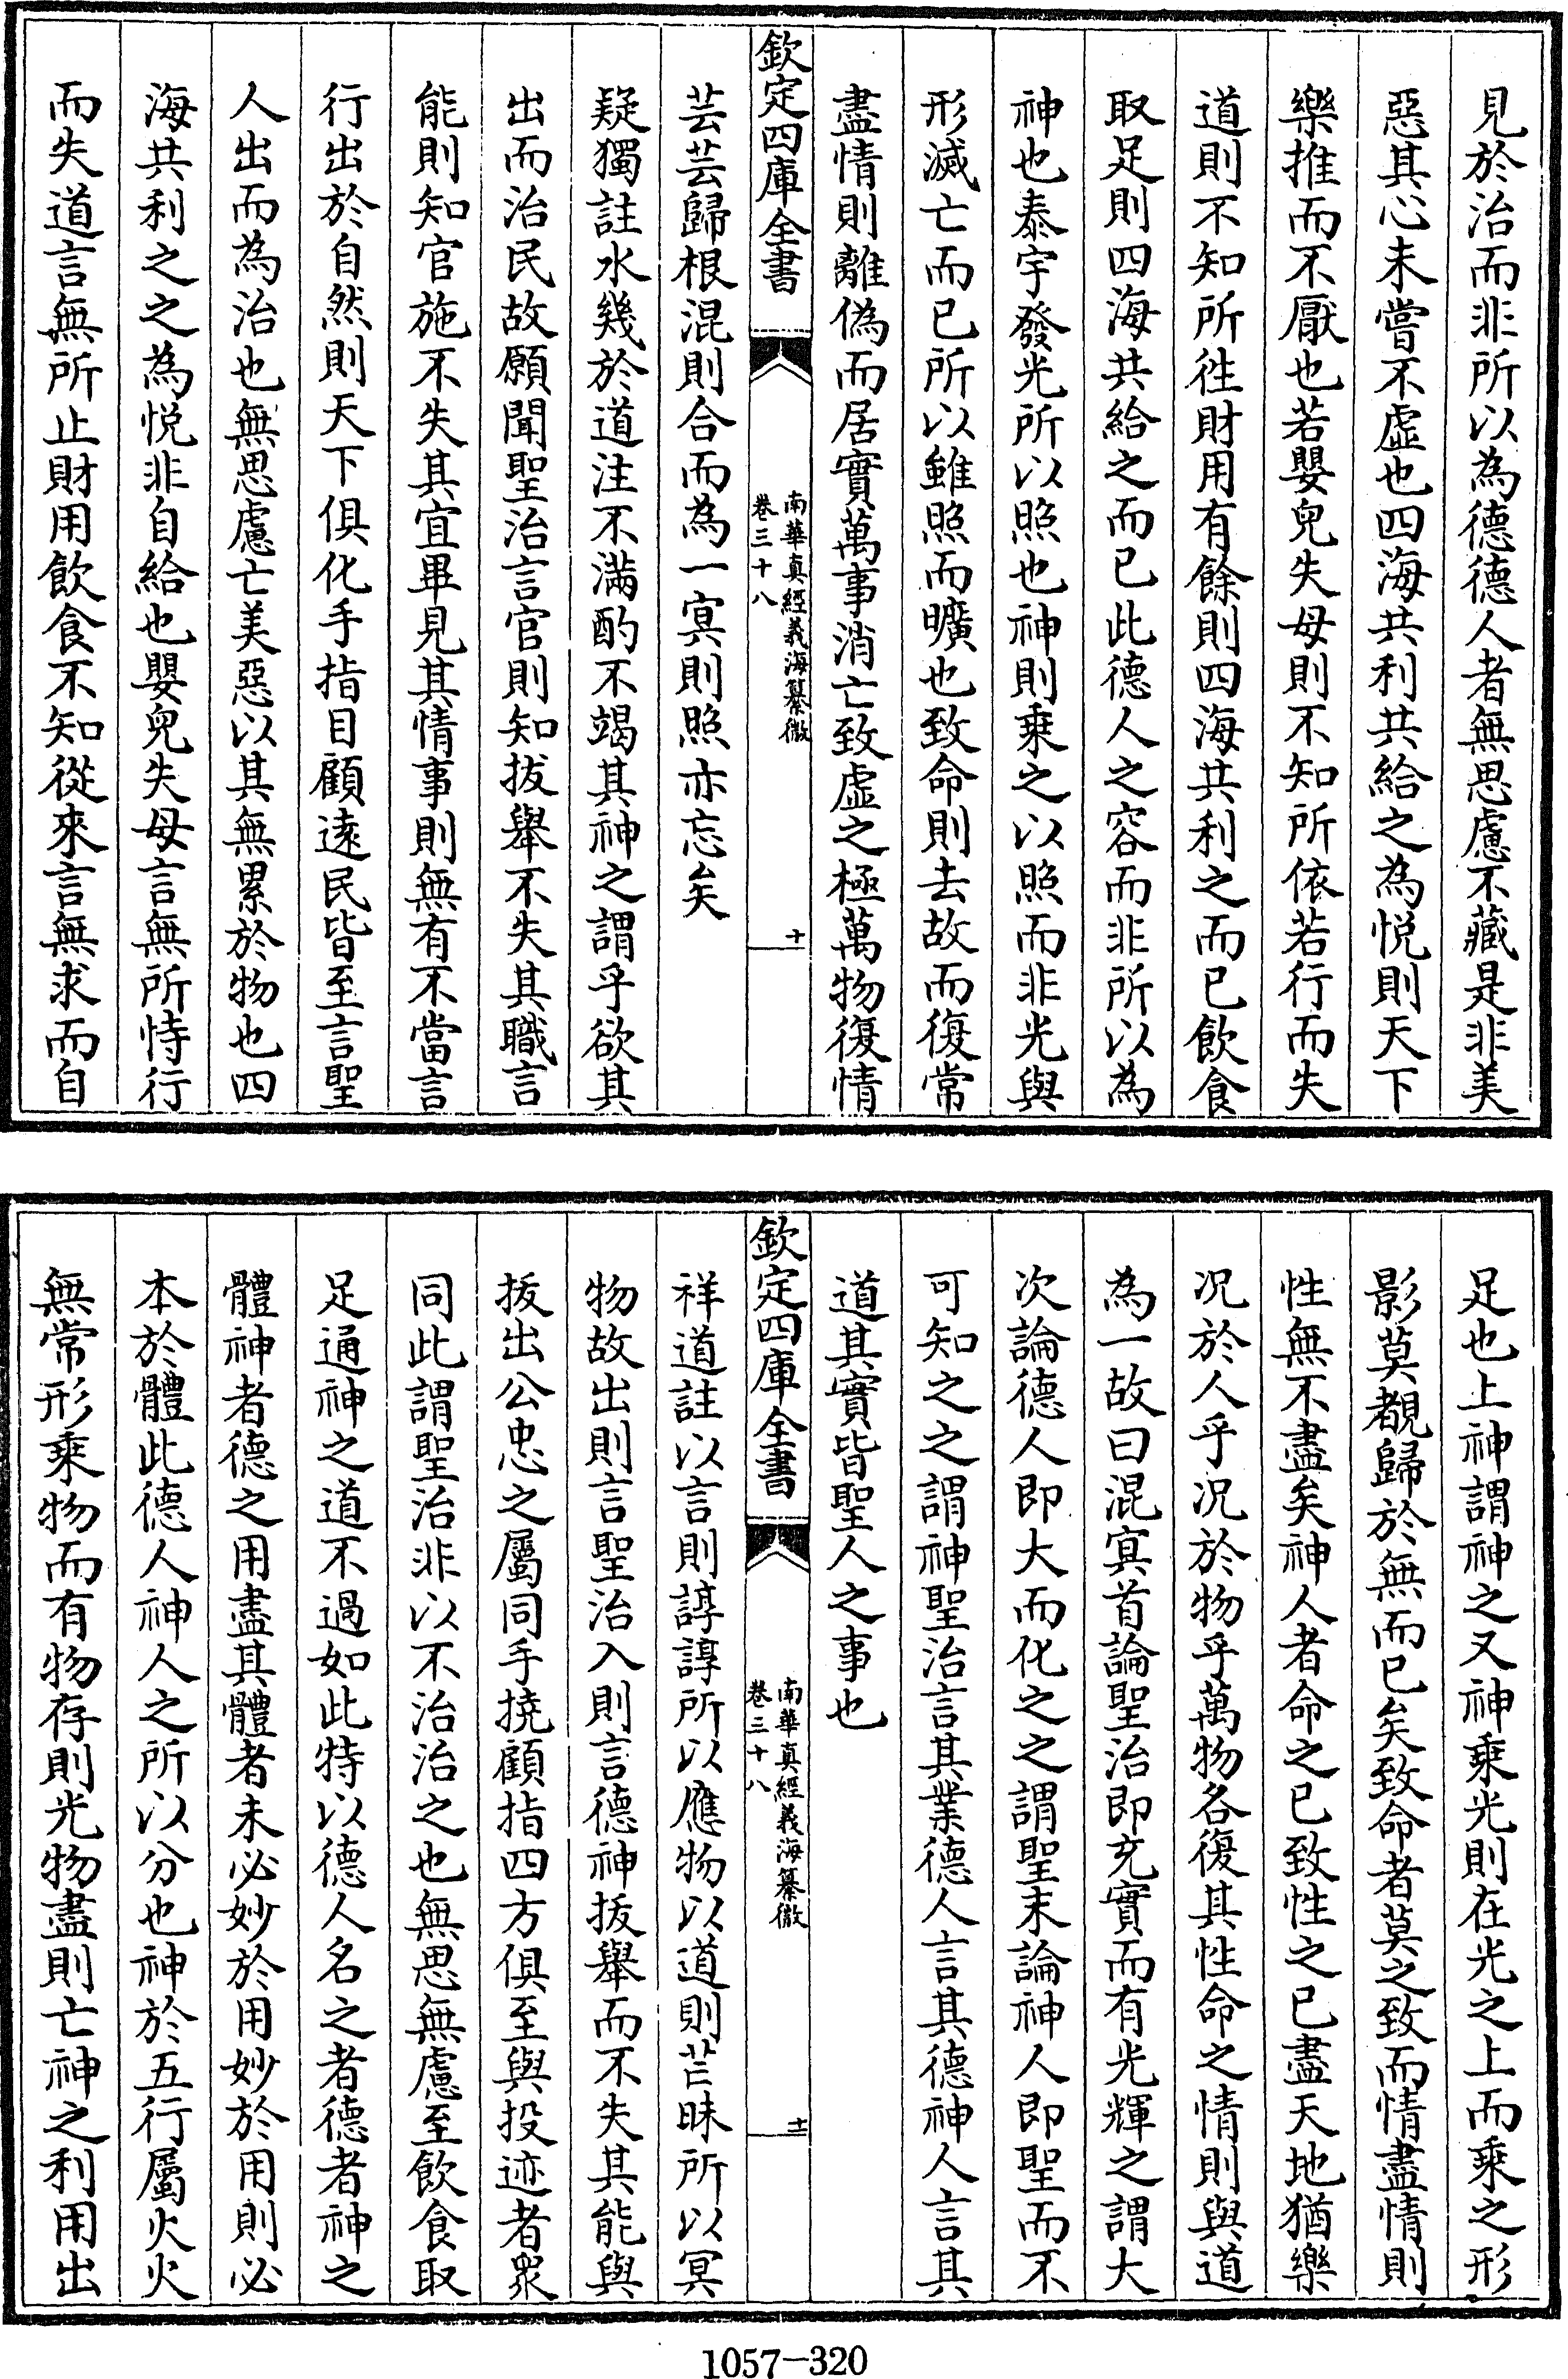 見於治而非所以為德德人者無思慮不藏是非美
惡其心未嘗不虛也四海共利共給之為悅則天下
樂推而不厭也若嬰兒失母則不知所依若行而失
道則不知所徃財用有餘則四海共利之而已飲食
取足則四海共給之而已此德人之容而非所以為
神也泰宇發光所以照也神則乘之以照而非光與
形滅亡而已所以雖照而曠也致命則去故而復常
盡情則離偽而居實萬事消亡致虛之極萬物復情
欽定四庫全書
南華真經義海纂微
卷三十八
十
芸芸歸根混則合而為一㝠則照亦忘矣
疑獨註水幾於道注不滿酌不竭其神之謂乎欲其
出而治民故願聞聖治言官則知拔舉不失其職言
能則知官施不失其宜畢見其情事則無有不當言
行出於自然則天下俱化手指目顧逺民皆至言聖
人出而為治也無思慮亡美惡以其無累於物也四
海共利之之為悅非自給也嬰兒失母言無所恃行
而失道言無所止財用飲食不知從來言無求而自
足也上神謂神之又神乘光則在光之上而乘之形
影莫覩歸於無而已矣致命者莫之致而情盡情則
性無不盡矣神人者命之已致性之已盡天地猶樂
况於人乎况於物乎萬物各復其性命之情則與道
為一故曰混㝠首論聖治即充實而有光輝之謂大
次論德人即大而化之之謂聖末論神人即聖而不
可知之之謂神聖治言其業德人言其德神人言其
道其實皆聖人之事也
欽定四庫全書
南華真經義海纂微
卷三十八
十一
祥道註以言則諄諄所以應物以道則芒昧所以冥
物故出則言聖治入則言德神拔舉而不失其能與
拔出公忠之屬同手撓顧指四方俱至與投迹者衆
同此謂聖治非以不治治之也無思無慮至飲食取
足通神之道不過如此特以德人名之者德者神之
體神者德之用盡其體者未必妙於用妙於用則必
本於體此德人神人之所以分也神於五行屬火火
無常形乘物而有物存則光物盡則亡神之利用出
1057-320